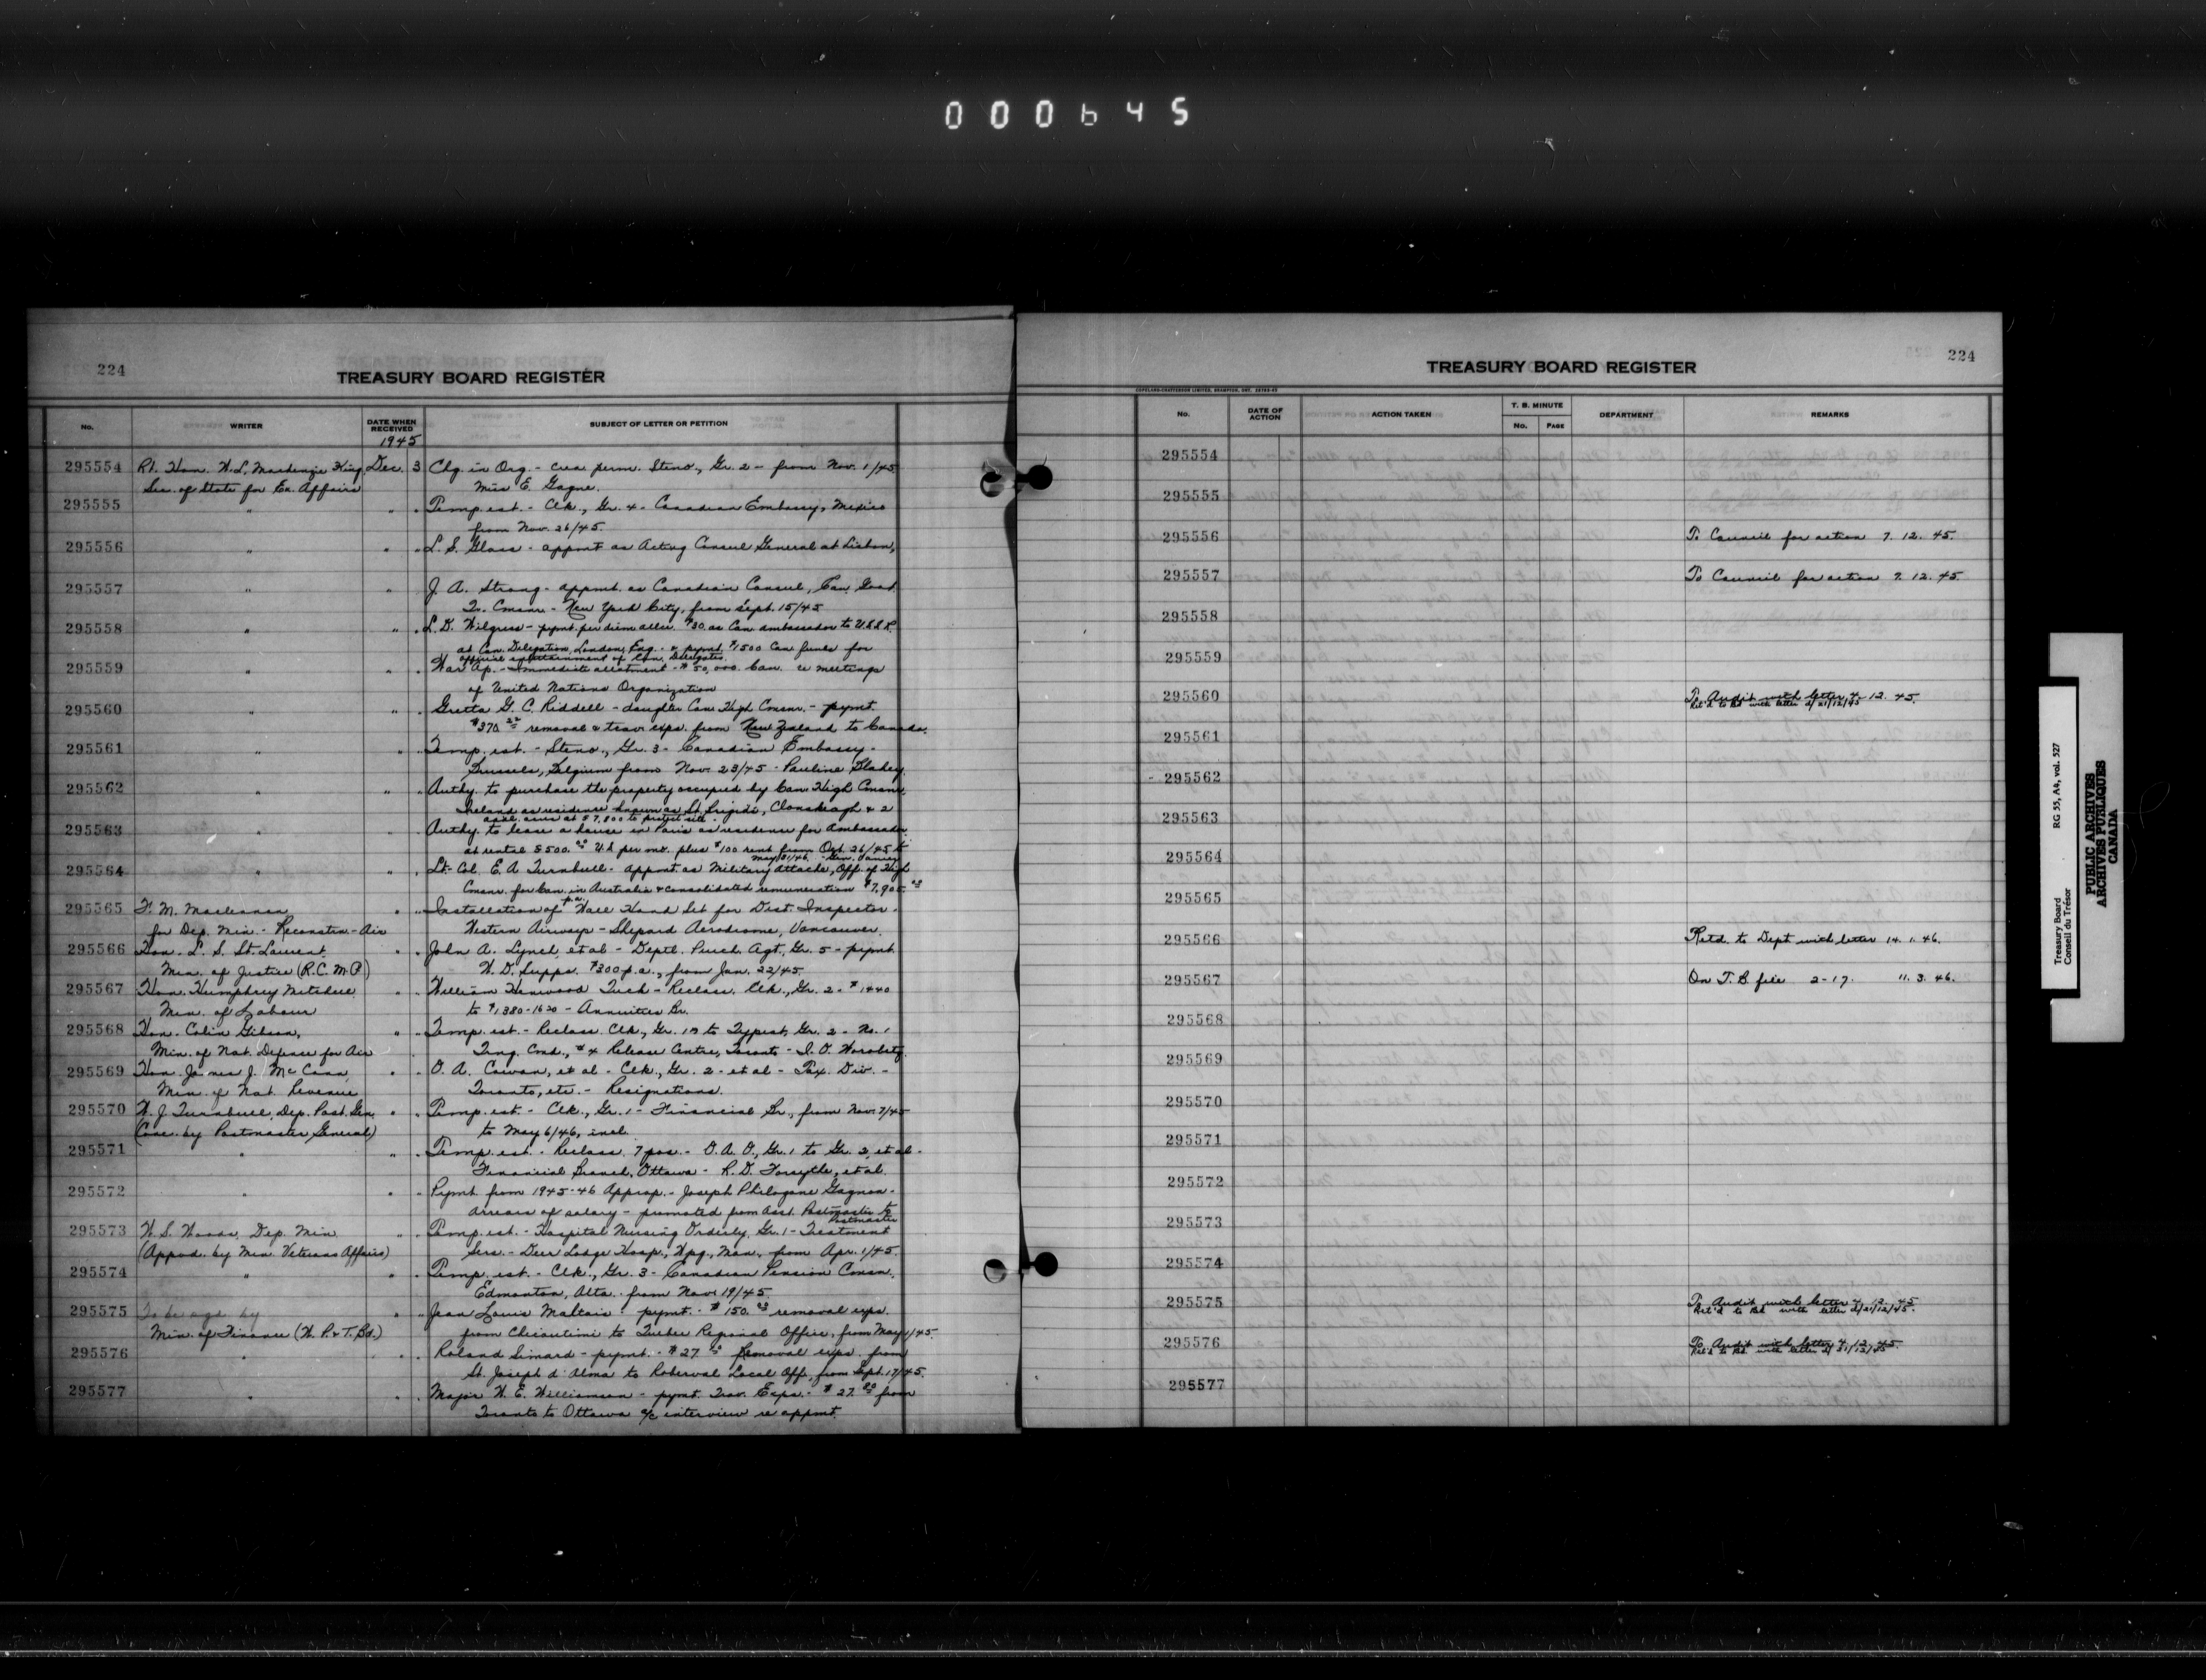 000645
224
TREASURY BOARD REGISTER
No. WRITER DATE WHEN RECEIVED SUBJECT OF LETTER OR PETITION
1945
295554 Rt. Hon. W.L. Mackenzie King Dec. 3 Chg. in Org. - crea. perm. Steno., Gr. 2 - from Nov. 1/45
Sec. of State for Ex. Affairs Miss E. Gagne.
295555 " " " Temp. est. - Clk., Gr. 4 - Canadian Embassy, Mexico
from Nov. 26/45.
295556 " " " L. S. Glass - appmt as Acting Consul General at Lisbon,
295557 " " J. A. Strong - appmt. as Canadian Consul, Can. Govt.
Tr. Cmsnr. - New York City, from Sept. 15/45
295558 " " " L. D. Wilgress - pymt. per diem allce. $30. as Can. ambassador to U.S.S.R.
at Can. Delegation, London, Eng. - & pymt. $1500 Can. funds for
official entertainment of Can. Delegates.
295559 " " " War Ap. - Immediate allotment - $50,000. Can. re meetings
of United Nations Organization
295560 " " " Gretta G. C. Riddell - daughter Can. High Cmsnr. - pymt.
$370. removal & trav. exps. from New Zealand to Canada.
295561 " " " Temp. est. - Steno., Gr. 3 - Canadian Embassy -
Brussels, Belgium from Nov. 23/45 - Pauline Blakey
295562 " " " Authy. to purchase the property occupied by Can. High Cmsnr.
Ireland as residence known as St. Brigids, Clonskeagh & 2
acres at $7,800 to protect site.
295563 " " Authy. to lease a house in Paris as residence for Ambassador
at rental $500.00 U.S. per mo. plus $100 rent from Oct. 26/45 to
May 31/46. - Gen. Vanier
295564 " " " Lt.-Col. E. A. Turnbull - appmt. as Military Attache, Off. of High
Cmsnr. for Can. in Australia & consolidated remuneration $7,905.
p.a.
295565 F. M. Maclennan " " Installation of Wall Hand Set for Dist. Inspector -
for Dep. Min. - Reconstn. - Air Western Airways - Shepard Aerodrome, Vancouver.
295566 Hon. L. S. St. Laurent, " " John A. Lynch, et al - Deptl. Purch. Agt., Gr. 5 - pymt.
Min. of Justice (R.C.M.P.) W. D. Supps. $300 p.a., from Jan. 22/45.
295567 Hon. Humphrey Mitchell " " William Henwood Tuck - Reclass. Clk., Gr. 2 - $1440
Min. of Labour to $1,380-1620 - Annuities Br.
295568 Hon. Colin Gibson, " " Temp. est. - Reclass. Clk., Gr. 1B to Typist, Gr. 2 - No. 1
Min. of Nat. Defence for Air Trng. Cmd., #4 Release Centre, Toronto - I. O. Worobetz
295569 Hon. James J. McCann, " " O. A. Cowan, et al - Clk., Gr. 2 - et al - Tax. Div. -
Min. of Nat. Revenue Toronto, etc. - Resignations.
295570 W. J. Turnbull, Dep. Post. Gen. " " Temp. est. - Clk., Gr. 1 - Financial Br., from Nov. 7/45
(Conc. by Postmaster General) to May 6/46, incl.
295571 " " Temp. est. - Reclass. 7 pos. - O. A. O., Gr. 1 to Gr. 2, et al -
Financial Branch, Ottawa - R. D. Forsythe, et al.
295572 " " " Pymt. from 1945-46 Approp. - Joseph Philogene Gagnon -
arrears of salary - promoted from Asst. Postmaster to
Postmaster
295573 W. S. Woods, Dep. Min. " " Temp. est. - Hospital Nursing Orderly, Gr. 1 - Treatment
(Appvd. by Min. Veterans Affairs) Serv. - Deer Lodge Hosp., Wpg., Man., from Apr. 1/45.
295574 " " " Temp. est. - Clk., Gr. 3 - Canadian Pension Comsn.
Edmonton, Alta. - from Nov. 19/45.
295575 To be sgd. by " " Jean Louis Maltais - pymt. - $150.00 removal exps.
Min. of Finance (W. P. & T. Bd.) from Chicoutimi to Quebec Regional Office, from May 1/45.
295576 " " " Roland Simard - pymt. - $27 removal exps. from
St. Joseph d'Alma to Roberval Local Off., from Sept. 17/45.
295577 " " Major W. E. Williamson - pymt. Trav. Exps. - $27. from
Toronto to Ottawa a/c interview re appmt.
224
TREASURY BOARD REGISTER
COPELAND-CHATTERSON LIMITED, BRAMPTON, ONT.
No. DATE OF ACTION ACTION TAKEN T. B. MINUTE No. PAGE DEPARTMENT REMARKS
295554
295555
295556 To Council for action 7. 12. 45.
295557 To Council for action 7. 12. 45
295558
295559
295560 To Audit with letter 4. 12. 45.
Ret'd to Bd. with letter d/21/12/45
295561
295562
295563
295564
295565
295566 Retd. to Dept with letter 14. 1. 46.
295567 On T. B. file 2-17. 11. 3. 46.
295568
295569
295570
295571
295572
295573
295574
295575 To Audit with letter 4. 12. 45
Ret'd to Bd. with letter d/21/12/45.
295576 To Audit with letter 4. 12. 45.
Ret'd to Bd. with letter d/21/12/45
295577
Treasury Board RG 55, A4, vol. 527
Conseil du Trésor
PUBLIC ARCHIVES
ARCHIVES PUBLIQUES
CANADA